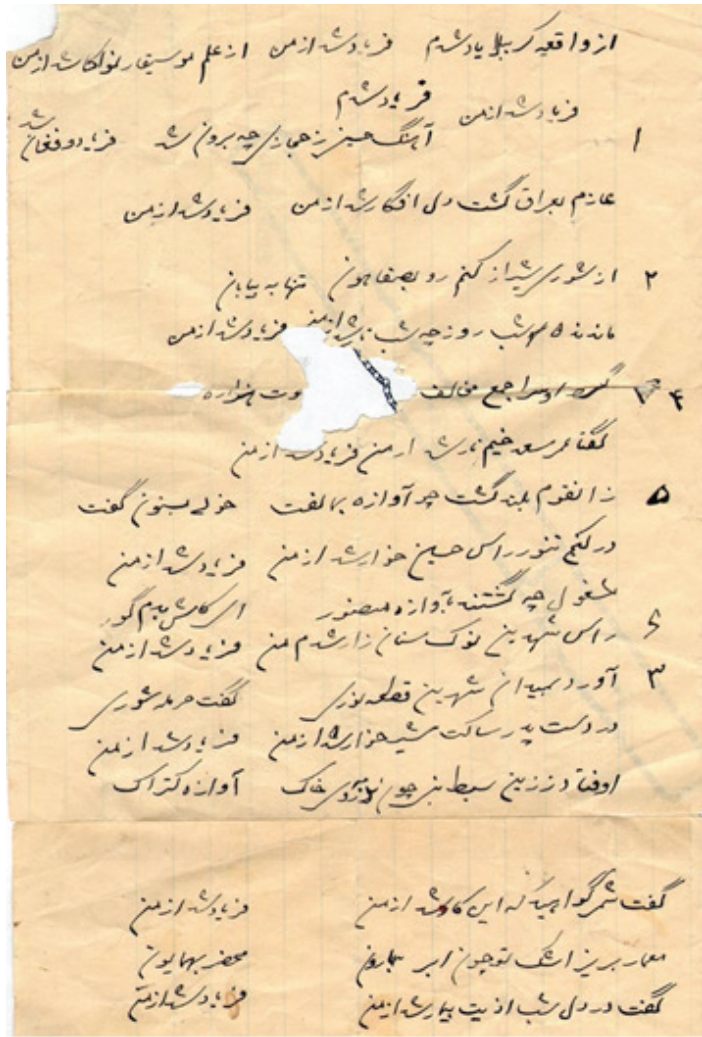 از واقعه کربلا یاد شدم فریاد شد از من از علم موسیقار نوا کاشد از من
فریاد شد از من فریاد شدم
۱ آهنگ حسین ز حجازی چه برون شد فریاد و فغان شد
عازم بعراق گشت دل افکار شد از من فریاد شد از من
۲ از شوری شیراز کنم رو بصفاهون تنها به بیابان
شب روز چه شب شد از من فریاد شد از من
۴ راجع مخالف
گفتا عمر سعد شد از من فریاد شد از من
۵ زانقوم بلند گشت چو آوازه بمالفت خولی گفت
در کنج تنور راس حسین خوار شد از من فریاد شد از من
مشغول چه گشتند بآوازه منصور ای کاش بدم گور
۶ راس شهدین نوک سنان زار شدم من فریاد شد از من
۳ آورد بمیدان شهدین قطعه نوری گفت حرمله شوری
در دست پدر ساکت خوار شد از من فریاد شد از من
اوفتاد ز زین سبط نبی چون روی خاک آوازه
گفت شمر گواهید که این کار شد از من فریاد شد از من
معمار بریز اشک تو چون ابر بهارون محضر بهمایون
گفت در دل شب اذیت بیمار شد از من فریاد شد از من